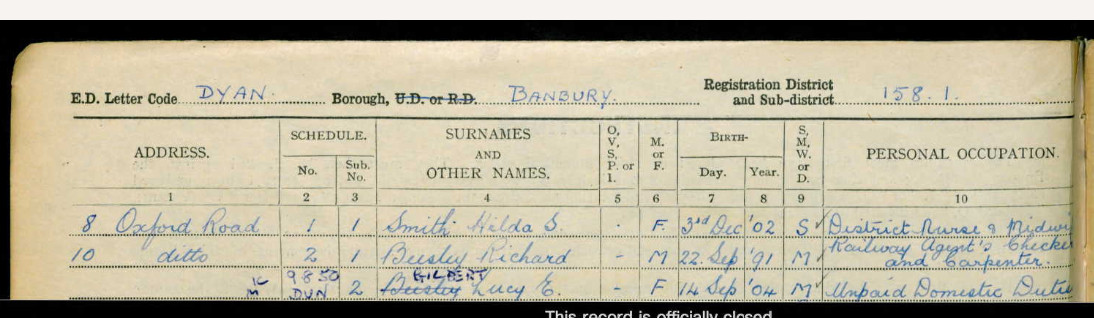 E.D. Letter Code DYAN Borough, U.D. or R.D. BANBURY. Registration District and Sub-district 158.1.
ADDRESS. SCHEDULE. No. Sub. No. SURNAMES AND OTHER NAMES. O, V, S, P. or I. M. or F. BIRTH- Day. Year. S, M, W. or D. PERSONAL OCCUPATION.
1 2 3 4 5 6 7 8 9 10
8 Oxford Road 1 1 Smith Hilda S. - F. 3rd Dec '02 S District Nurse & Midwi
10 ditto 2 1 Beesley Richard - M 22. Sep '91 M Railway Agent's Checker and Carpenter.
9850 GILBERT
DUN 2 Beesley Lucy E. - F 14 Sep '04 M Unpaid Domestic Dutie
This record is officially closed